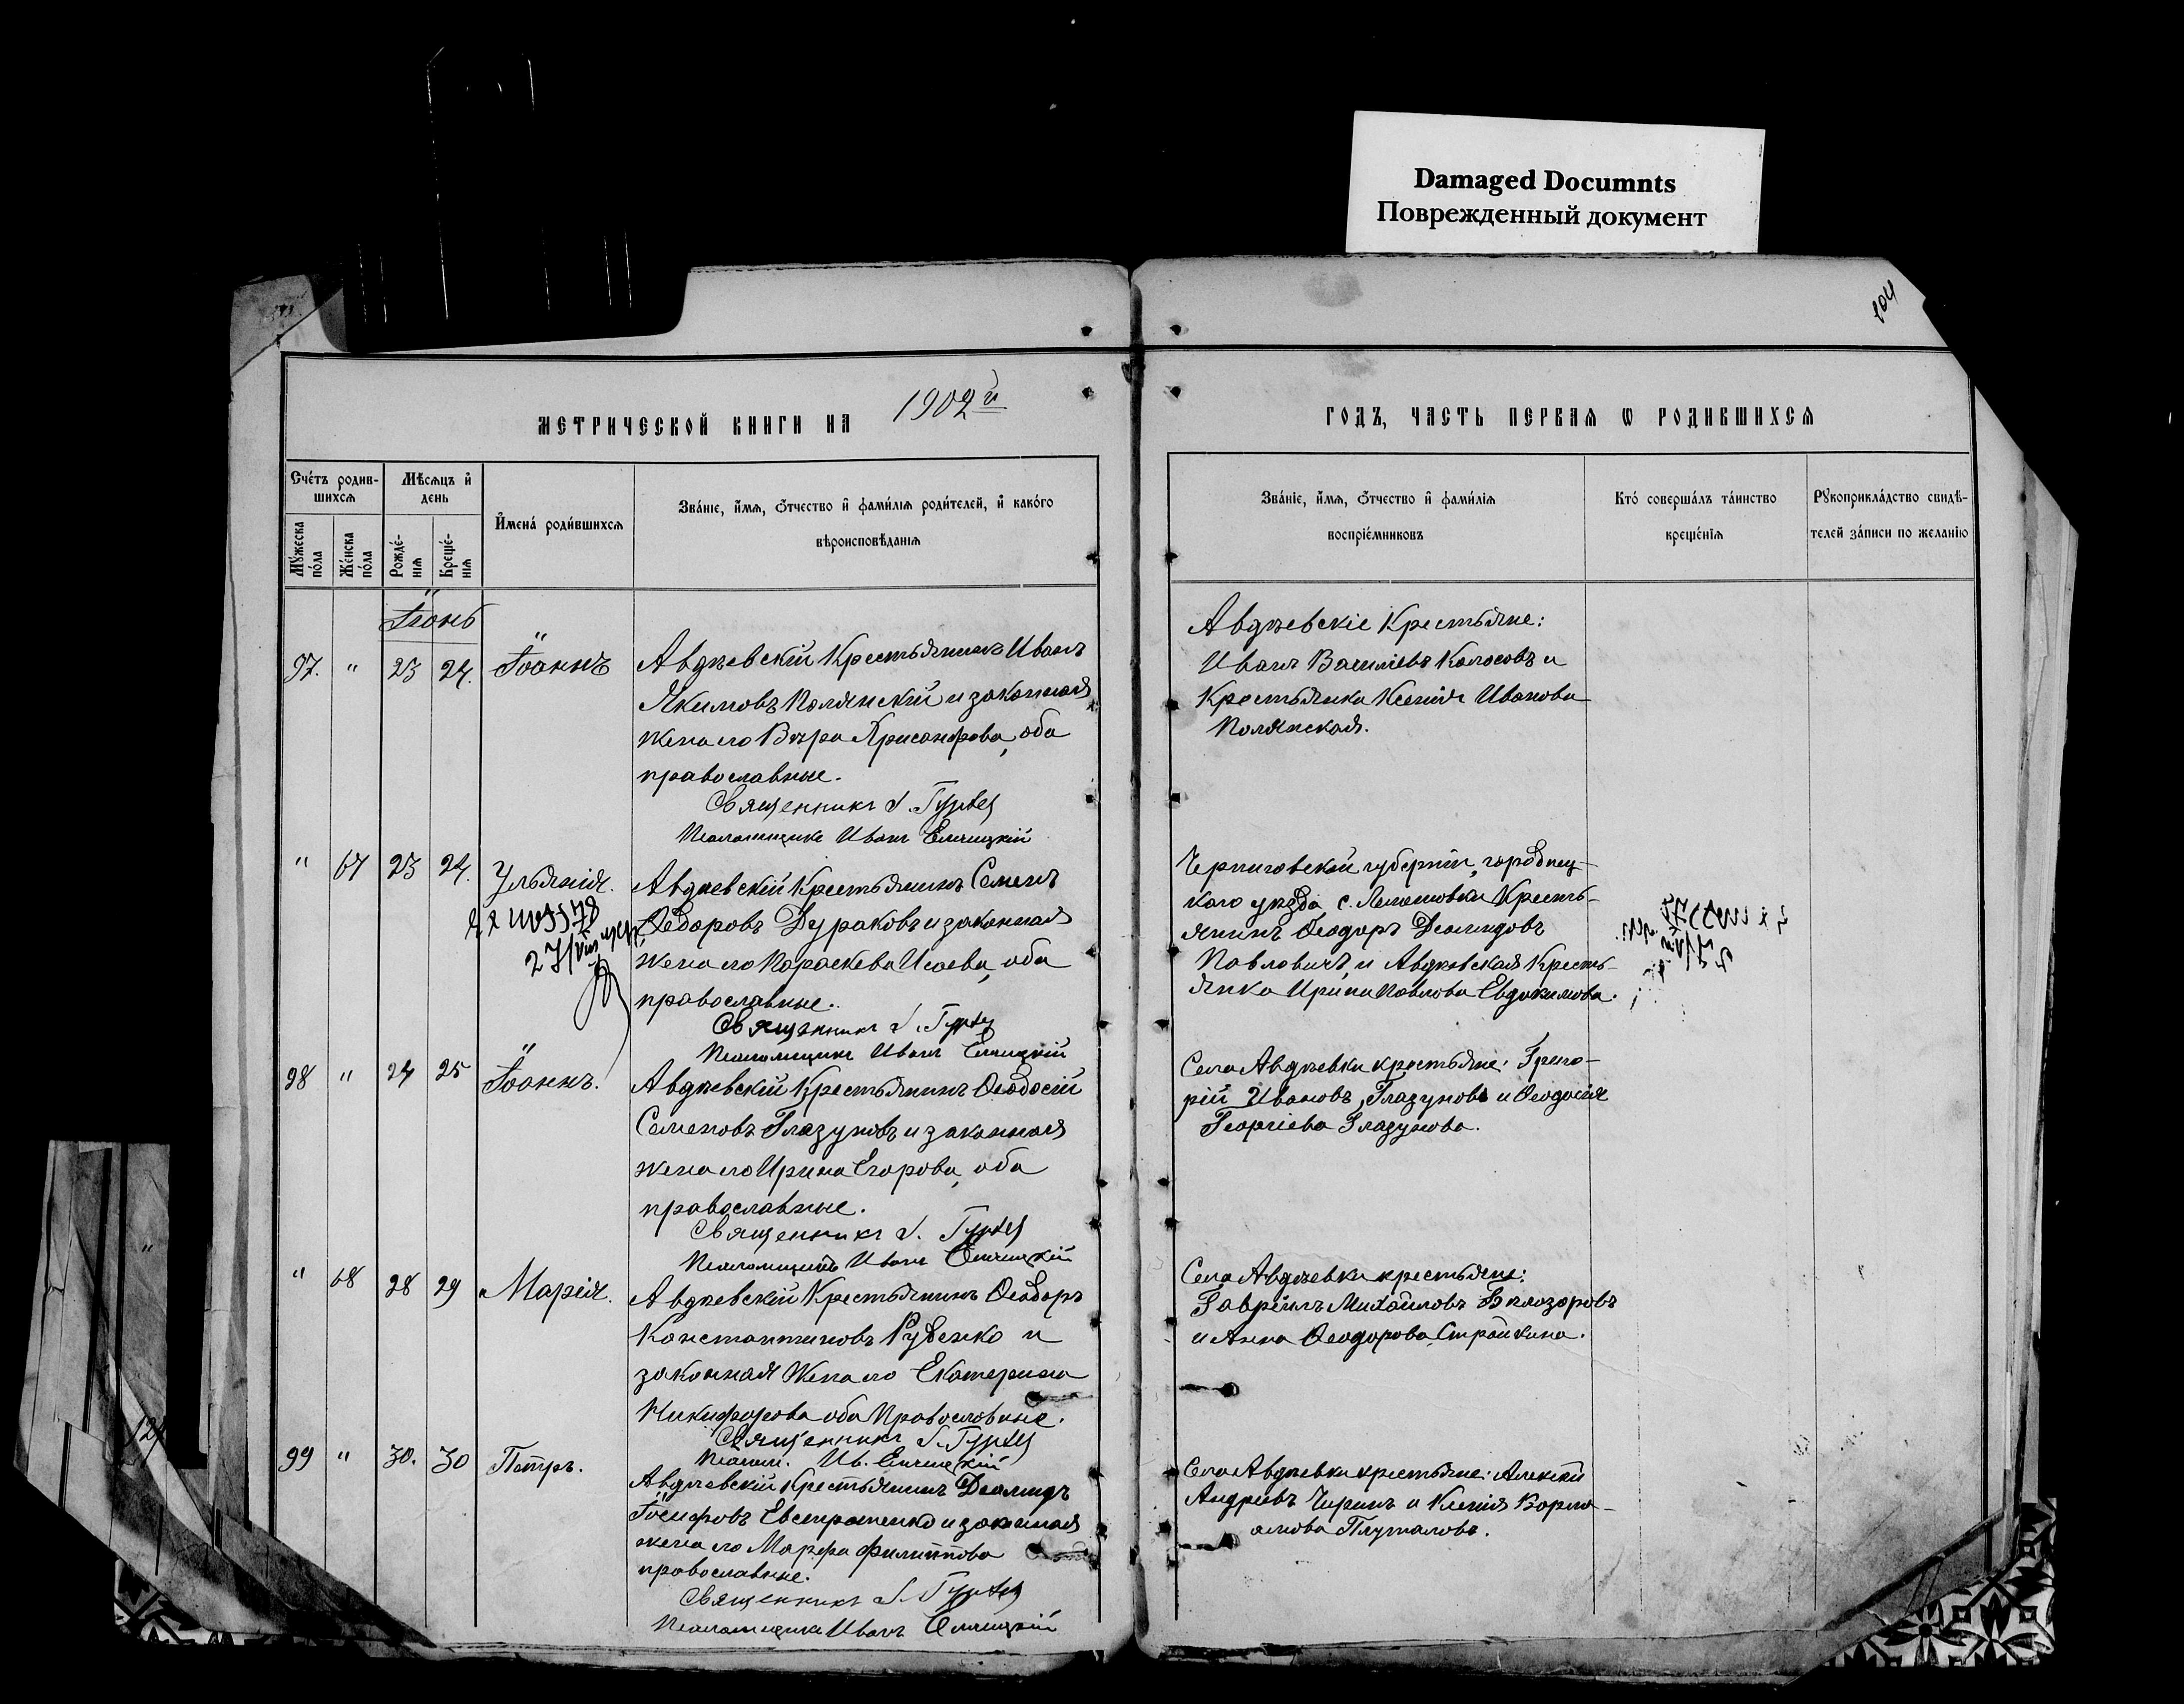 Damaged Documnts
Поврежденный документ
104
МЕТРИЧЕСКОЙ КНИГИ НА 1902й
ГОДЪ, ЧАСТЬ ПЕРВАЯ Ѡ РОДИВШИХСЯ
Счетъ родив-
шихся
Мужеска
пола
Женска
пола
Мѣсяцъ и
день
Рожде-
нія
Креще-
нія
Имена родившихся
Званіе, имя, отчество и фамилія родителей, и какого
вѣроисповѣданія
Званіе, имя, отчество и фамилія
воспріемниковъ
Кто совершалъ таинство
крещенія
Рукоприкладство свидѣ-
телей записи по желанію
Іюнь
97. " 23 24. Іоаннъ
Авдѣевскій Крестьянинъ Иванъ
Якимовъ Полянскій и законная
жена его Вѣра Хрисанфова, оба
православные.
Священникъ І. Гурьев
Псаломщикъ Иванъ
Авдѣевскіе Крестьяне:
Иванъ Василіевъ Колосовъ и
Крестьянка Ксенія Иванова
Полянская.
" 67 23 24. Ульянія.
27/VIII
Авдѣевскій Крестьянинъ Семенъ
Ѳедоровъ Дураковъ и законная
жена его Параскева Исаева, оба
православные.
Священникъ І. Гурьев
Псаломщикъ Иванъ
Черниговской губерніи, городнец-
каго уѣзда с. Крестъ-
янинъ Ѳеодоръ Діомидовъ
Павловичъ, и Авдѣевская Кресть-
янка Ирина Павлова Евдокимова.
98 " 24 25 Іоаннъ.
Авдѣевскій Крестьянинъ Ѳеодосій
Семеновъ Глазуновъ и законная
жена его Ирина Егорова, оба
православные.
Священникъ І. Гурьев
Псаломщикъ Иванъ
Села Авдѣевки крестьяне: Григо-
рій Ивановъ Глазуновъ и Ѳеодосія
Георгіева Глазунова.
" 68 28 29 Марія.
Авдѣевскій Крестьянинъ Ѳеодоръ
Константиновъ Руденко и
законная Жена его Екатерина
Никифорова оба Православные.
Священникъ І. Гурьев
Псалом. Ив.
Села Авдѣевки крестьяне:
Гавріилъ Михаиловъ Бѣлозоровъ
и Анна Ѳеодорова Стройкина.
99 " 30. 30 Петръ.
Авдѣевскій Крестьянинъ Діомидъ
Іосифовъ Евстратенко и законная
жена его Марфа Филиппова
православные.
Священникъ І. Гурьев
Псаломщикъ Иванъ
Села Авдѣевки крестьяне: Алексій
Андреевъ Чиринъ и Ксенія Варла-
амова Плуталова.